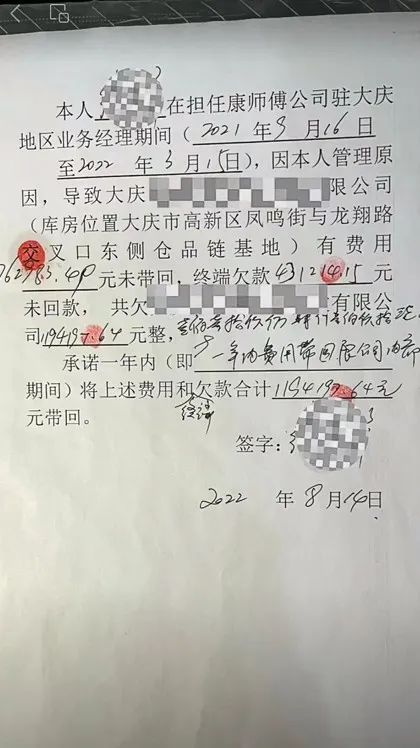 本人在担任康师傅公司驻大庆
地区业务经理期间（2021 年9 月16日
至2022 年3月15日），因本人管理原
因，导致大庆限公司
（库房位置大庆市高新区凤鸣街与龙翔路
交叉口东侧仓品链基地）有费用
762983.49元未带回，终端欠款431214.15元
未回款，共欠有限公
司1194197.64元整，壹佰壹拾玖万肆仟壹佰玖拾柒
承诺一年内（即一年内费用带回
期间）将上述费用和欠款合计1194197.64元
元带回。
签字：
2022 年8月14日